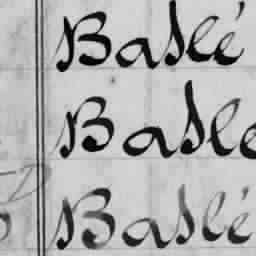 Baslé
Basle
Baslé